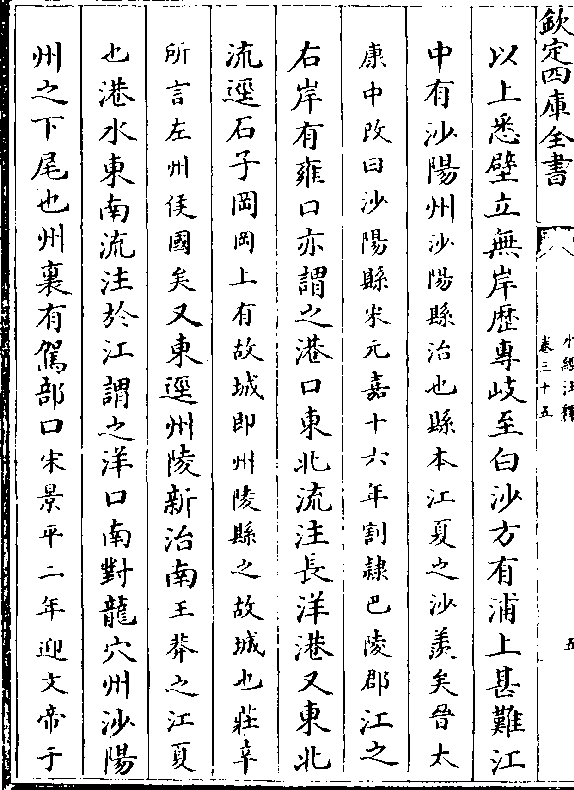 欽定四庫全書
水經注釋
卷三十五
五
以上悉壁立無岸歷專岐至白沙方有浦上甚難江
中有沙陽州沙陽縣治也縣本江夏之沙羨矣晉太
康中改曰沙陽縣宋元嘉十六年割隷巴陵郡江之
右岸有雍口亦謂之港口東北流注長洋港又東北
流逕石子岡岡上有故城即州陵縣之故城也莊辛
所言左州侯國矣又東逕州陵新治南王莽之江夏
也港水東南流注於江謂之洋口南對龍穴州沙陽
州之下尾也州裏有駕部口宋景平二年迎文帝于